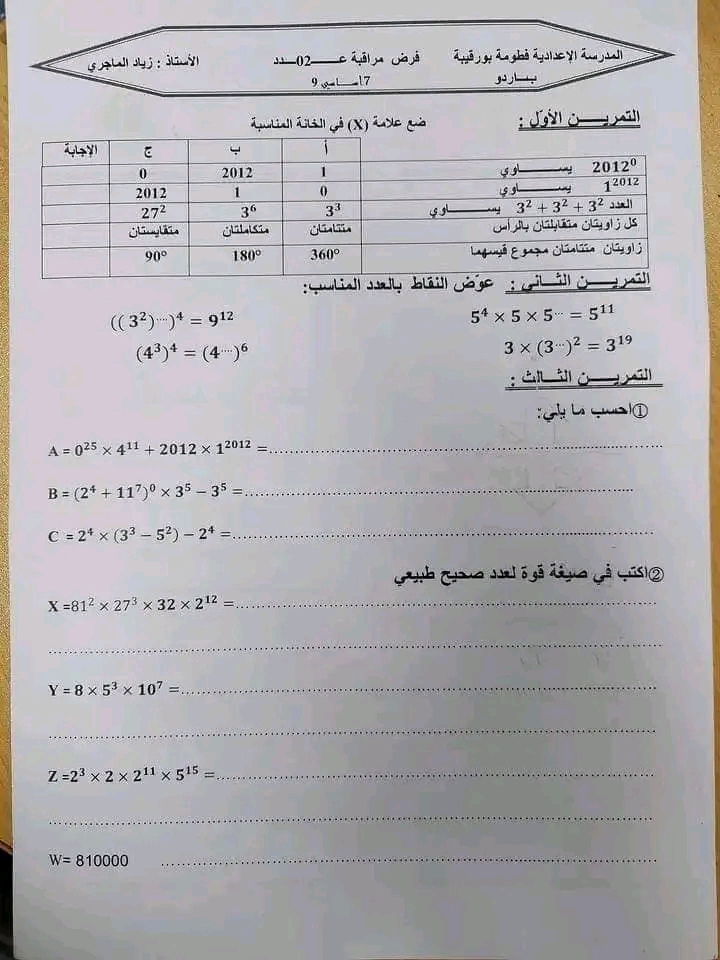 المدرسة الإعدادية فطومة بورقيبة فرض مراقبة عـــــ02ــــدد الأستاذ : زياد الماجري
ببـــاردو 7 أســاسي 9
التمريـــــن الأوّل : ضع علامة (X) في الخانة المناسبة
أ ب ج الإجابة
2012⁰ يســـــــاوي 1 2012 0
1²⁰¹² يســـــــاوي 0 1 2012
العدد 3² + 3² + 3² يســـــــاوي 3³ 3⁶ 27²
كل زاويتان متقابلتان بالرأس متتامتان متكاملتان متقايستان
زاويتان متتامتان مجموع قيسهما 360° 180° 90°
التمريـــــن الثـــاني : عوّض النقاط بالعدد المناسب:
5⁴ × 5 × 5^... = 5¹¹ ((3²)^....)⁴ = 9¹²
3 × (3^...)² = 3¹⁹ (4³)⁴ = (4^....)⁶
التمريـــــن الثـــالث :
①احسب ما يلي:
A = 0²⁵ × 4¹¹ + 2012 × 1²⁰¹² =..............................
B = (2⁴ + 11⁷)⁰ × 3⁵ − 3⁵ =..............................
C = 2⁴ × (3³ − 5²) − 2⁴ =..............................
②اكتب في صيغة قوة لعدد صحيح طبيعي
X =81² × 27³ × 32 × 2¹² =..............................
..............................
Y = 8 × 5³ × 10⁷ =..............................
..............................
Z =2³ × 2 × 2¹¹ × 5¹⁵ =..............................
..............................
W= 810000 ..............................